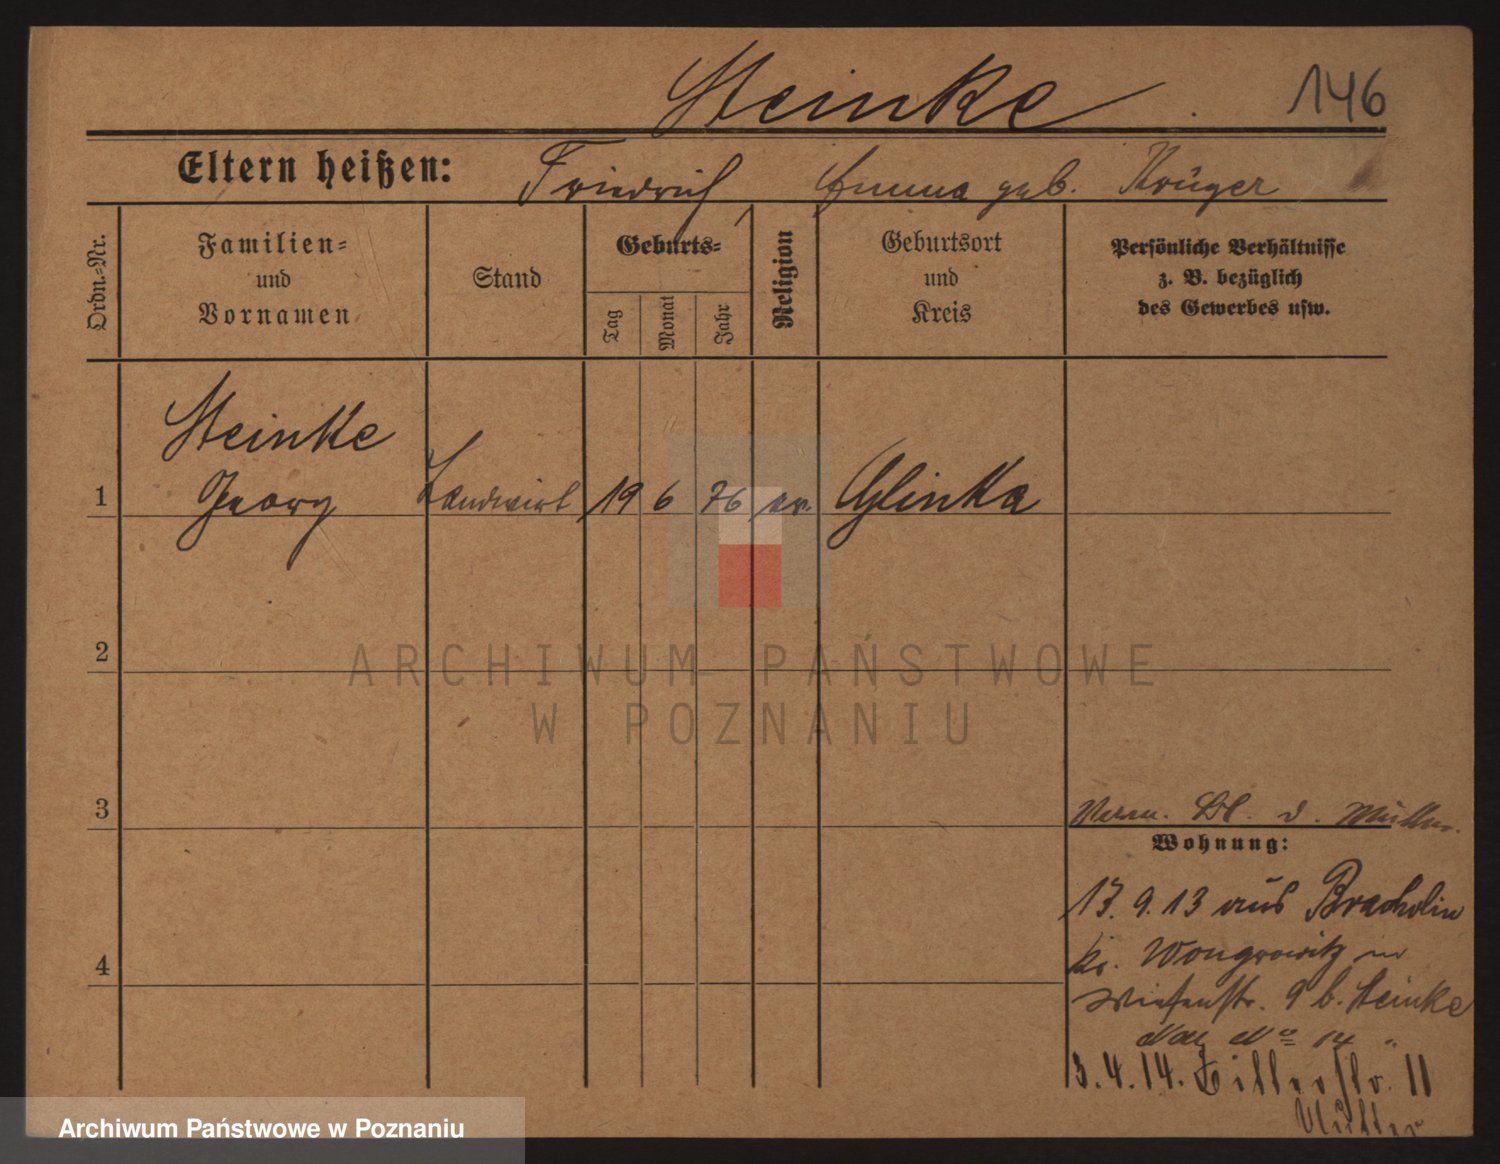 Steinke.
146
Eltern heißen: Friedrich, Emma geb. Krüger
Ordn.-Nr.
Familien-
und
Vornamen
Stand
Geburts-
Tag
Monat
Jahr
Religion
Geburtsort
und
Kreis
Persönliche Verhältnisse
z. B. bezüglich
des Gewerbes usw.
Steinke
1 Georg Landwirt 19 6 76 ev. Glinka
2
ARCHIWUM PAŃSTWOWE
W POZNANIU
3
d. Mutter.
Wohnung:
13. 9. 13 aus Bracholin
4
Kr. Wongrowitz in
Wiesenstr. 9 b. Steinke
No 14 "
3.4.14. 11
Mutter
Archiwum Państwowe w Poznaniu